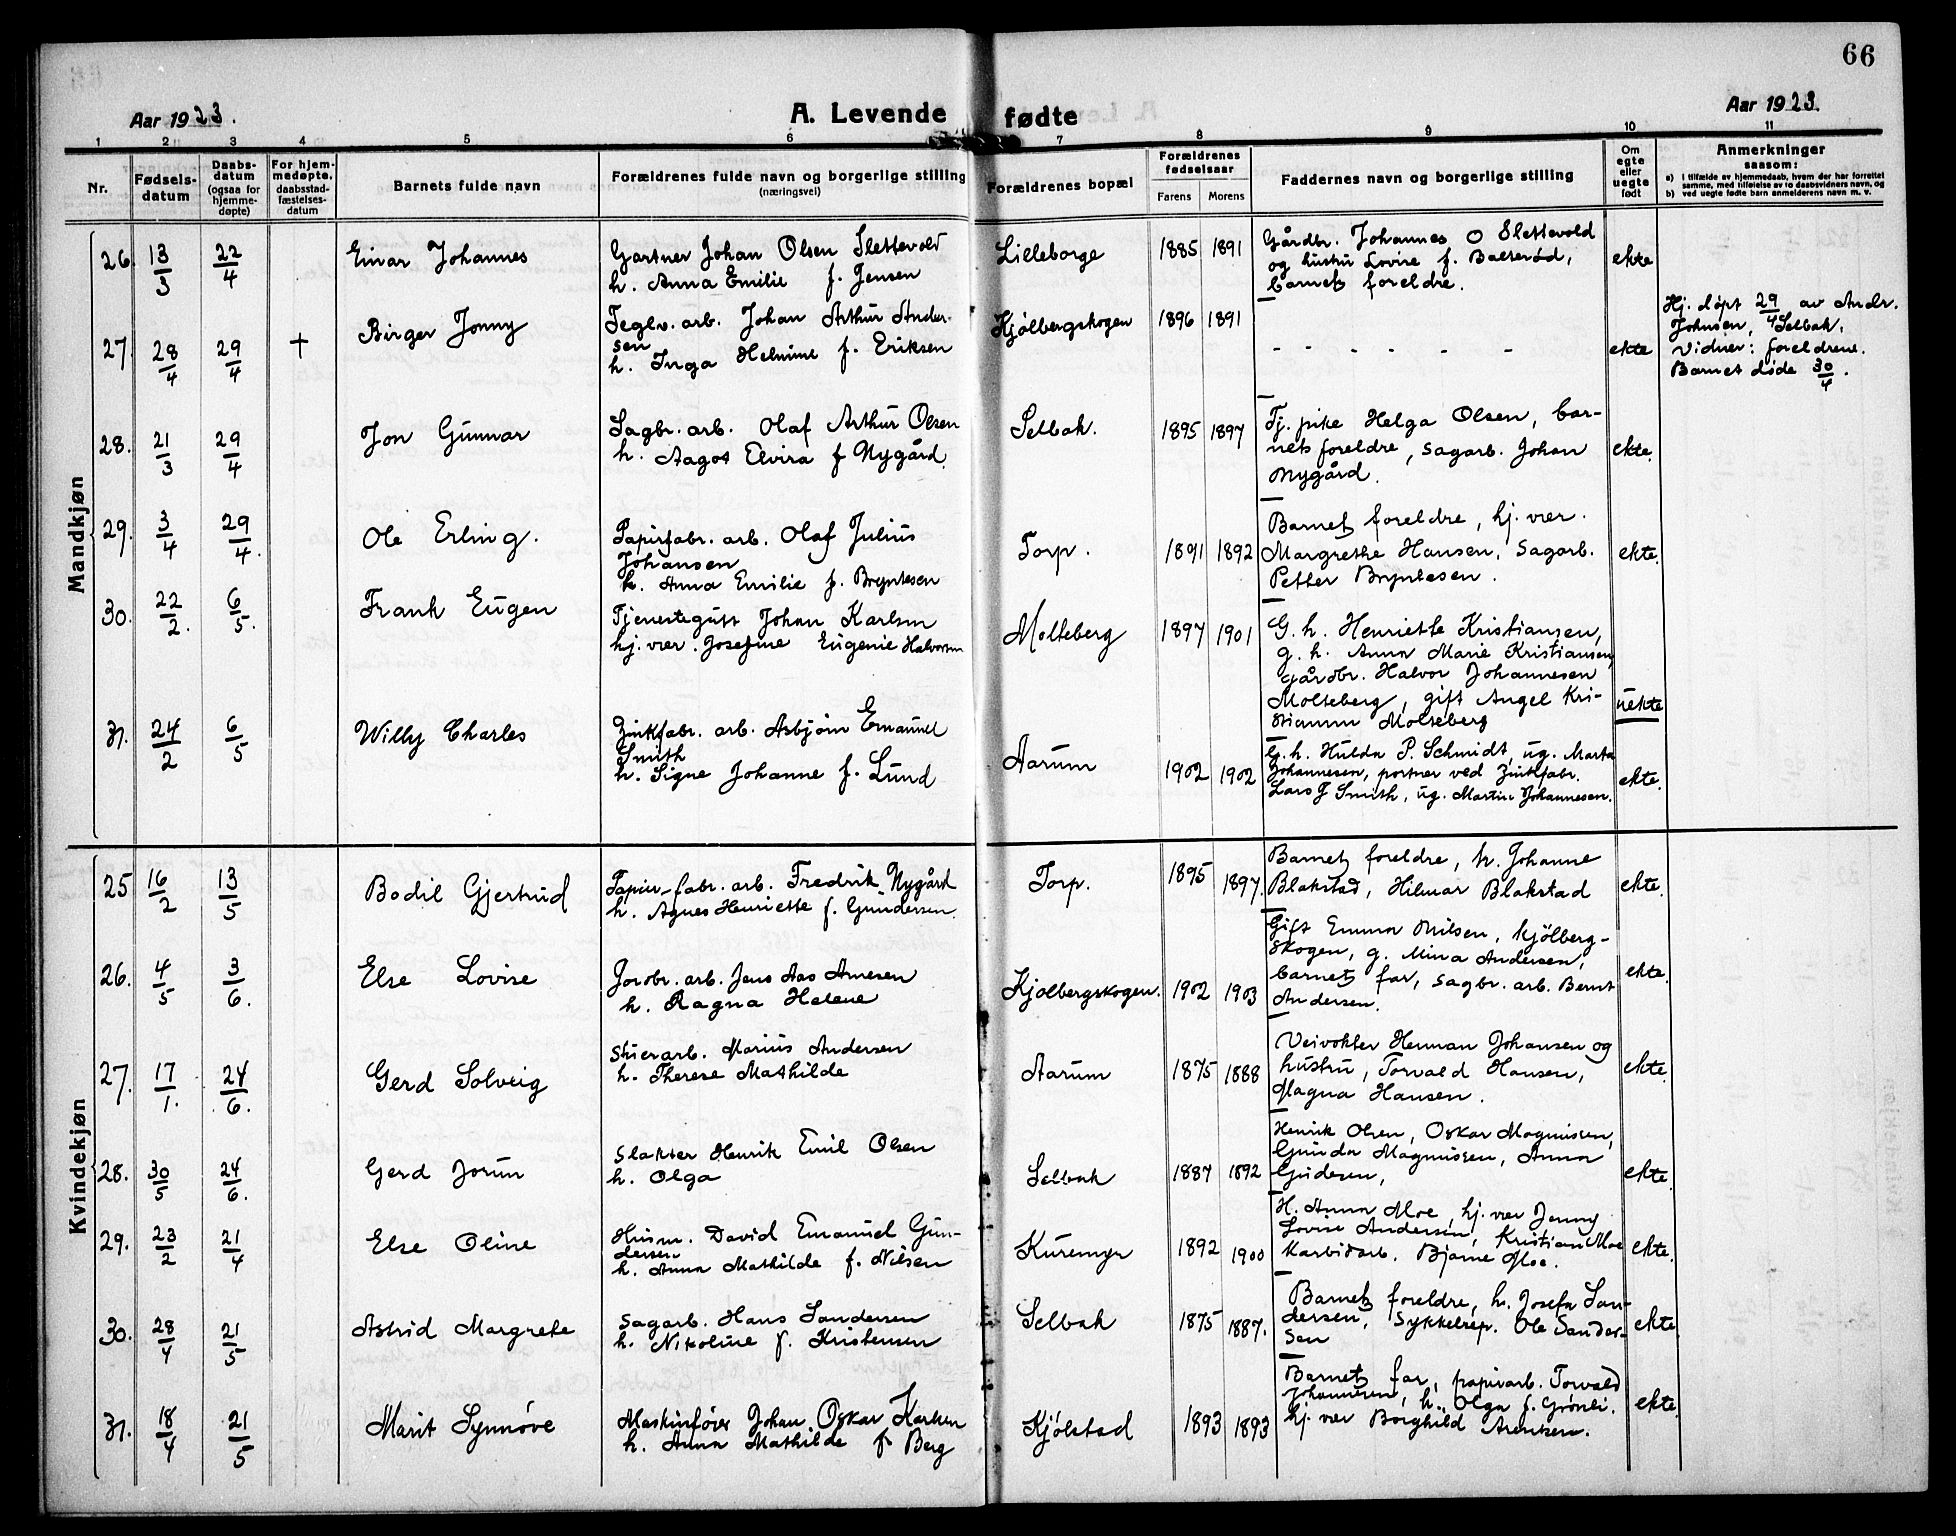 66
Aar 1923.
A. Levende fødte
Aar 1923.
1 2 3 4 5 6 7 8 9 10 11
Nr.
Fødsels-
datum
Daabs-
datum
(ogsaa for
hjemme-
døpte)
For hjem-
medøpte,
daabsstad-
fæstelses-
datum
Barnets fulde navn
Forældrenes fulde navn og borgerlige stilling
(næringsvei)
Forældrenes bopæl
Forældrenes
fødselsaar
Farens Morens
Faddernes navn og borgerlige stilling
Om
egte
eller
uegte
født
Anmerkninger
saasom:
a) I tilfælde av hjemmedaab, hvem der har forrettet
samme, med tilføielse av to daabsvidners navn, og
b) ved uegte fødte barn anmelderens navn m. v.
Mandkjøn
26. 13/3 22/4 Einar Johannes
Gartner Johan Olsen Slettevold
h. Anna Emilie f. Jensen
Lilleborge 1885 1891
Gårdbr. Johannes O Slettevold
og hustru Lovise f. Balserød,
barnets foreldre.
ekte
27. 28/4 29/4 + Birger Jonny
Teglv. arb. Johan Arthur Ander-
sen
h. Inga Helmine f. Eriksen
Kjølbergskogen 1896 1891
- - - - - -
ekte
Hj. døpt 29/4 av Andr.
Johnsen, Selbak.
Vidner: foreldrene.
Barnet døde 30/4.
28. 21/3 29/4 Jon Gunnar
Sagbr. arb. Olaf Arthur Olsen
h. Aagot Elvira f Nygård.
Selbak. 1895 1897
Tj. pike Helga Olsen, bar-
nets foreldre, sagarb. Johan
Nygård.
ekte.
29. 3/4 29/4. Ole Erling.
Papirfabr. arb. Olaf Julius
Johansen
h. Anna Emilie f. Bryntesen
Torp. 1891 1892
Barnets foreldre, hj. vær.
Margrethe Hansen, sagarb.
Petter Bryntesen.
ekte.
30. 22/2. 6/5. Frank Eugen
Tjenestegutt Johan Karlsen
hj. vær. Josefine Eugenie Halvorsen
Molteberg 1897 1901
G. h. Henriette Kristiansen,
g. h. Anna Marie Kristiansen,
gårdbr. Halvor Johannesen
Molteberg, gift Angel Kri-
stiansen Molteberg
uekte
31. 24/2 6/5 Willy Charles
Zinkfabr. arb. Asbjørn Emanuel
Smith
h. Signe Johanne f. Lund
Aarum 1902 1902
G. h. Hulda P. Schmidt, ug. Marta
Johannesen, portner ved Zinkfabr.
Lars J Smith, ug. Martin Johannesen.
ekte.
Kvindekjøn
25 16/2 13/5 Bodil Gjertrud
Papir-fabr. arb. Fredrik Nygård
h. Agnes Henriette f. Gundersen.
Torp. 1895 1897.
Barnets foreldre, h. Johanne
Blakstad, Hilmar Blakstad
ekte.
26. 4/5 3/6. Else Lovise
Jordbr. arb. Jens Aas Arnesen
h. Ragna Helene
Kjølbergskogen. 1902 1903
Gift Emma Nilsen, Kjölberg-
skogen, g. Mina Andersen,
barnets far, sagbr. arb. Bernt
Andersen.
ekte.
27. 17/1. 24/6. Gerd Solveig
Stuerarb. Marius Andersen
h. Therese Mathilde
Aarum 1875 1888
Veivokter Herman Johansen og
hustru, Torvald Hansen,
Magna Hansen.
ekte.
28. 30/5 24/6. Gerd Jorun
Slakter Henrik Emil Olsen
h. Olga
Selbak 1887 1892
Henrik Olsen, Oskar Magnussen,
Gunda Magnussen, Anna
Gudesen,
ekte.
29. 23/2 21/4 Else Oline
Husm. David Emanuel Gun-
dersen
h. Anna Mathilde f. Nilsen
Kuremyr 1892 1900
H. Anna Moe, hj. vær Jenny
Lovise Andersen, Kristian Moe
Karbidarb. Bjarne Moe.
ekte.
30. 28/4 21/5 Astrid Margrete
Sagarb. Hans Sandersen
h. Nikoline f. Kristensen
Selbak 1875 1887.
Barnets foreldre, h. Josefa San-
dersen, Sykkelrep. Ole Sander-
sen
ekte.
31. 18/4 21/5 Marit Synnøve
Maskinfører Johan Oskar Karlsen
h. Anna Mathilde f. Berg
Kjølstad 1893 1893
Barnets far, papirarb. Torvald
Johannesen, h. Olga f. Grönli.
hj. vær Borghild Arentsen.
ekte.